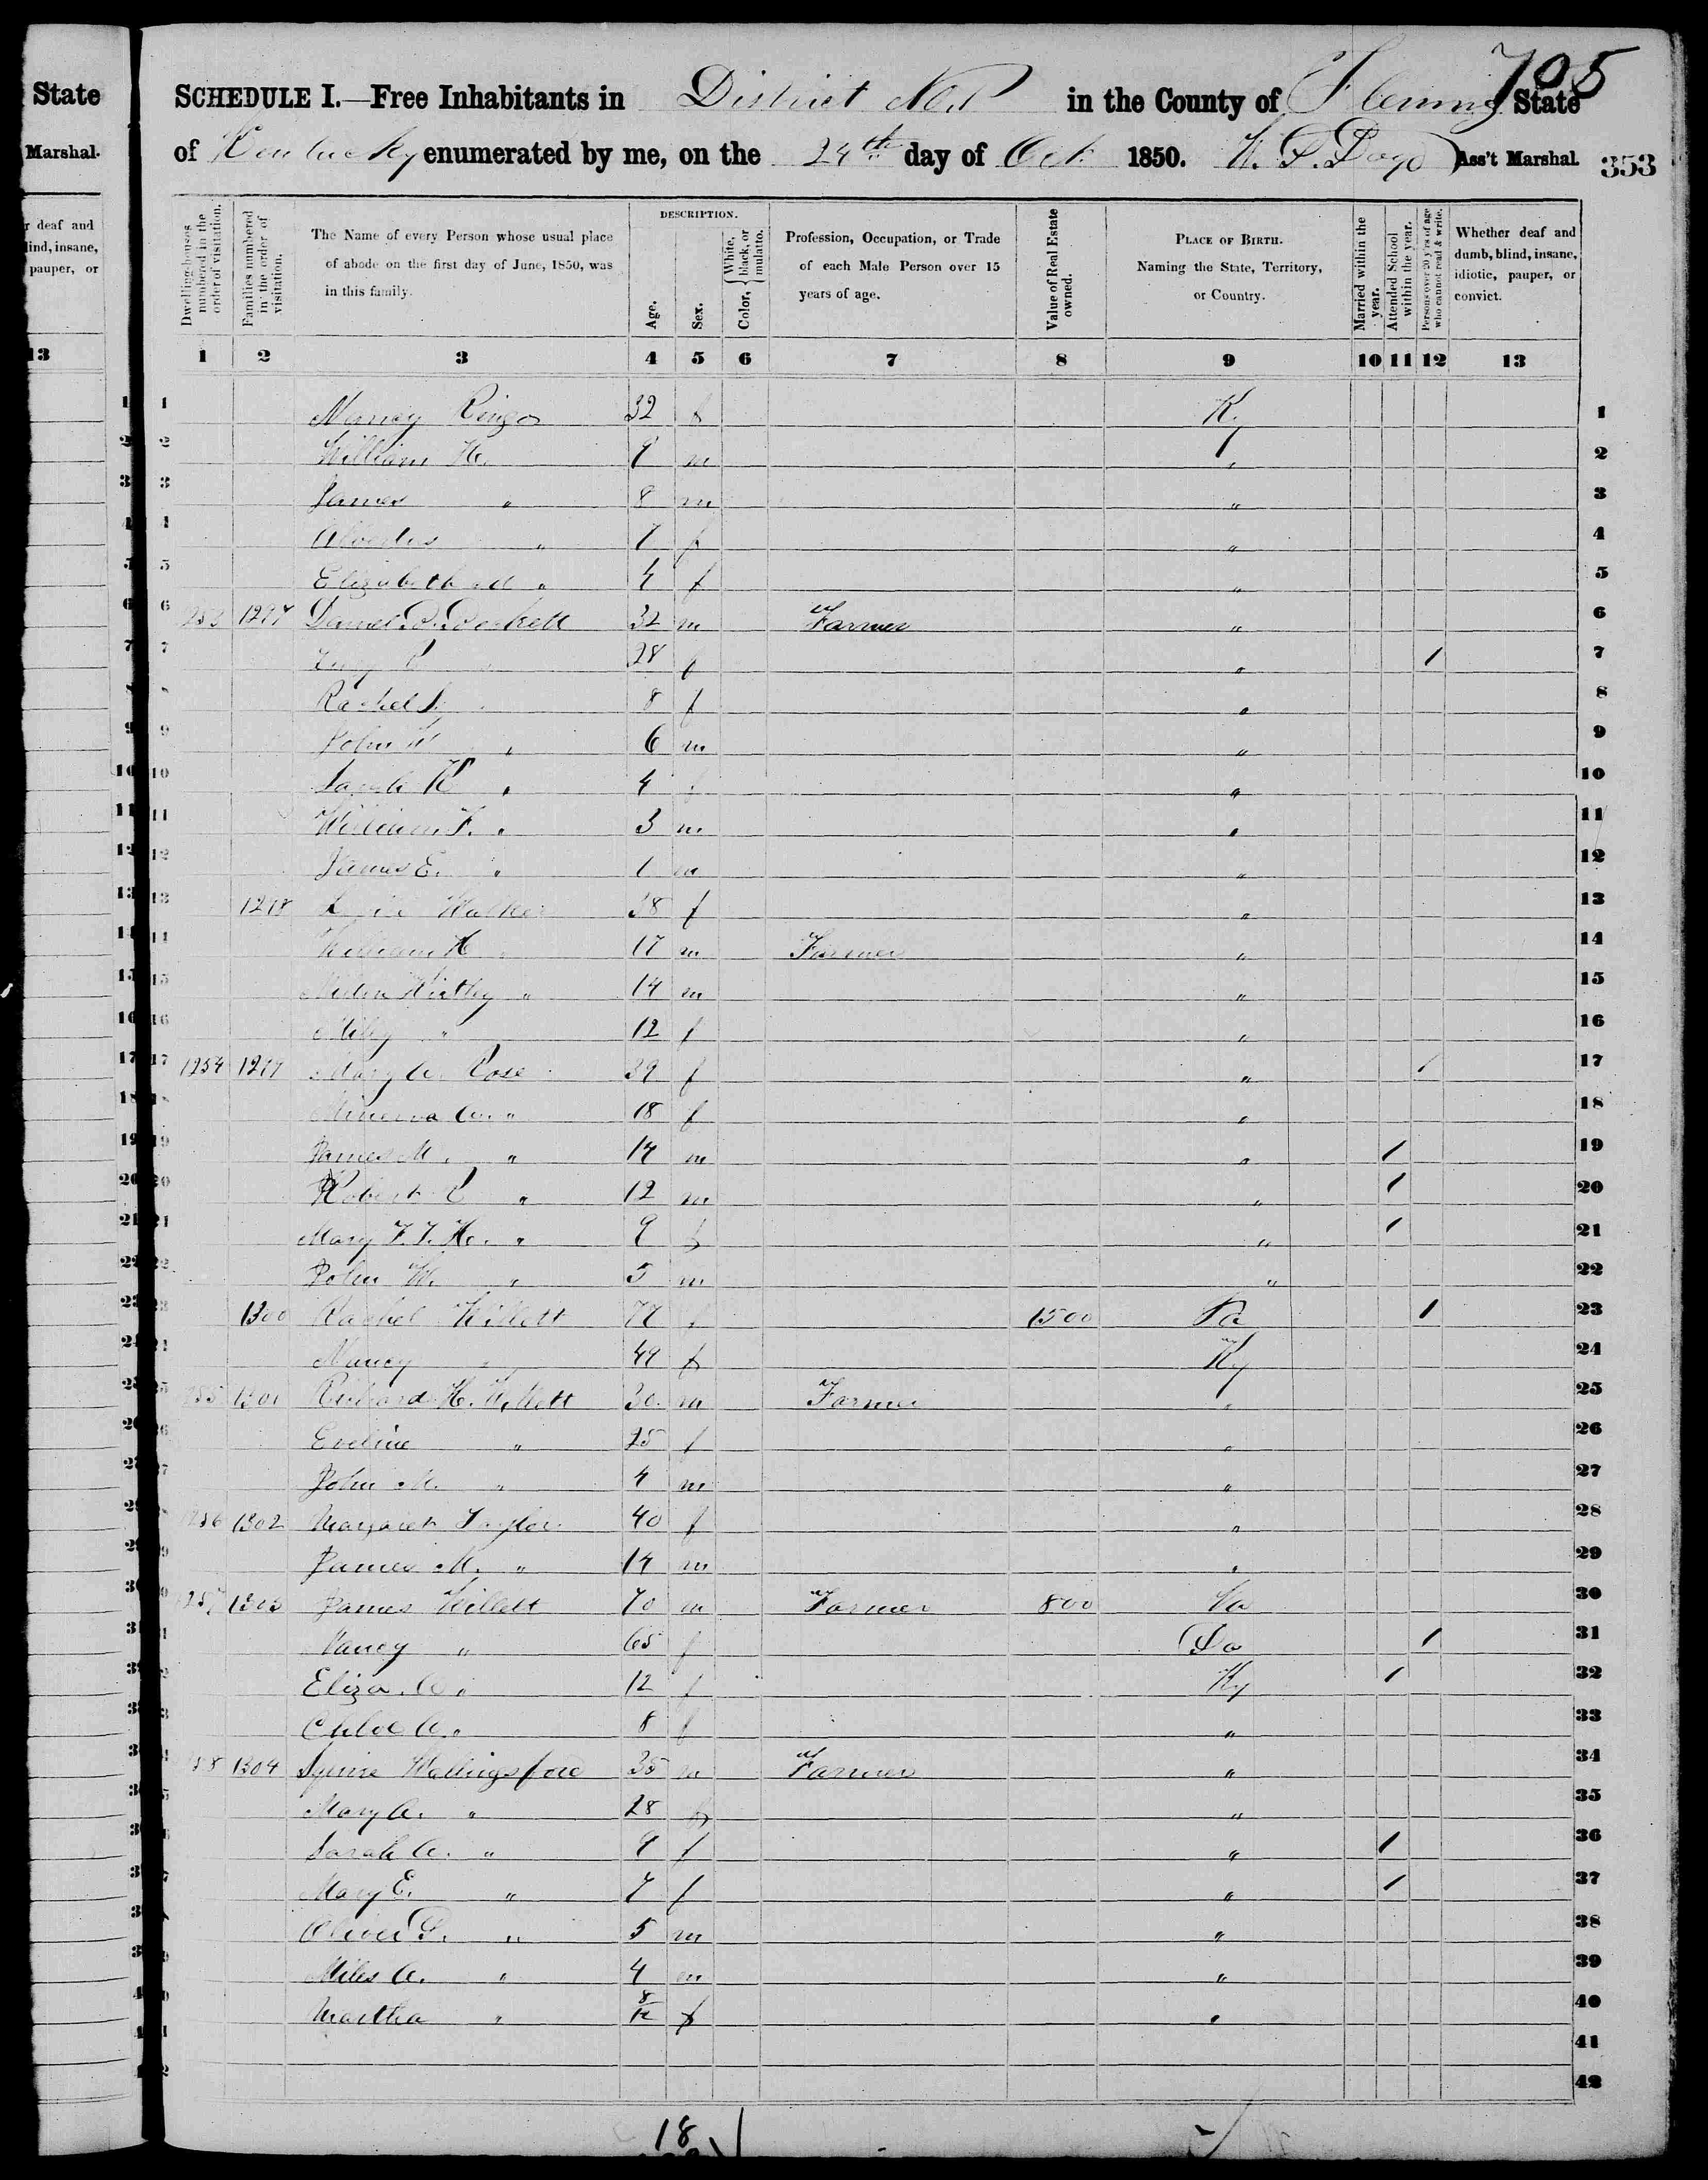 State
Marshal.
r deaf and
lind, insane,
pauper, or
13
705
SCHEDULE I.—Free Inhabitants in District No. 1 in the County of Fleming State
of Kentucky enumerated by me, on the 24th day of Oct 1850. Ass't Marshal.
353
Dwelling-houses numbered in the order of visitation.
Families numbered in the order of visitation.
The Name of every Person whose usual place of abode on the first day of June, 1850, was in this family.
DESCRIPTION.
Age.
Sex.
Color, White, black, or mulatto.
Profession, Occupation, or Trade of each Male Person over 15 years of age.
Value of Real Estate owned.
PLACE OF BIRTH. Naming the State, Territory, or Country.
Married within the year.
Attended School within the year.
Persons over 20 y'rs of age who cannot read & write.
Whether deaf and dumb, blind, insane, idiotic, pauper, or convict.
1 2 3 4 5 6 7 8 9 10 11 12 13
1 Nancy Ringo 32 f Ky 1
2 William H. 9 m " 2
3 James " 8 m " 3
4 " 7 f " 4
5 Elizabeth " 4 f " 5
6 1297 Daniel 32 m Farmer " 6
7 28 f " / 7
8 Rachel 8 f " 8
9 John " 6 m " 9
10 Sarah " 4 " 10
11 William F. " 3 m " 11
12 James E. " 1 m " 12
13 1298 Walker 38 f " 13
14 William H " 17 m Farmer " 14
15 " 14 m " 15
16 " 12 f " 16
17 1254 1299 Mary A. Rose 39 f " / 17
18 Minerva A. " 18 f " 18
19 James M. " 14 m " / 19
20 Robert " 12 m " / 20
21 Mary F. J. H. " 9 f " / 21
22 John W. " 5 m " 22
23 1300 Rachel Willett 77 f 1500 Pa / 23
24 Nancy " 49 f Ky 24
25 1301 Richard H. Willett 30 m Farmer " 25
26 Eveline " 25 f " 26
27 John M. " 4 m " 27
28 1256 1302 Margaret Taylor 40 f " 28
29 James M. " 14 m " 29
30 1257 1303 James Willett 70 m Farmer 800 Va 30
31 Nancy " 65 f Do / 31
32 Eliza A. " 12 f Ky / 32
33 Chloe A. " 8 f " 33
34 1304 Squire Wallingsford 35 m Farmer " 34
35 Mary A. " 28 f " 35
36 Sarah A. " 9 f " / 36
37 Mary E. " 7 f " / 37
38 Oliver " 5 m " 38
39 Miles A. " 4 m " 39
40 Martha " 8/12 f " 40
41
42
18